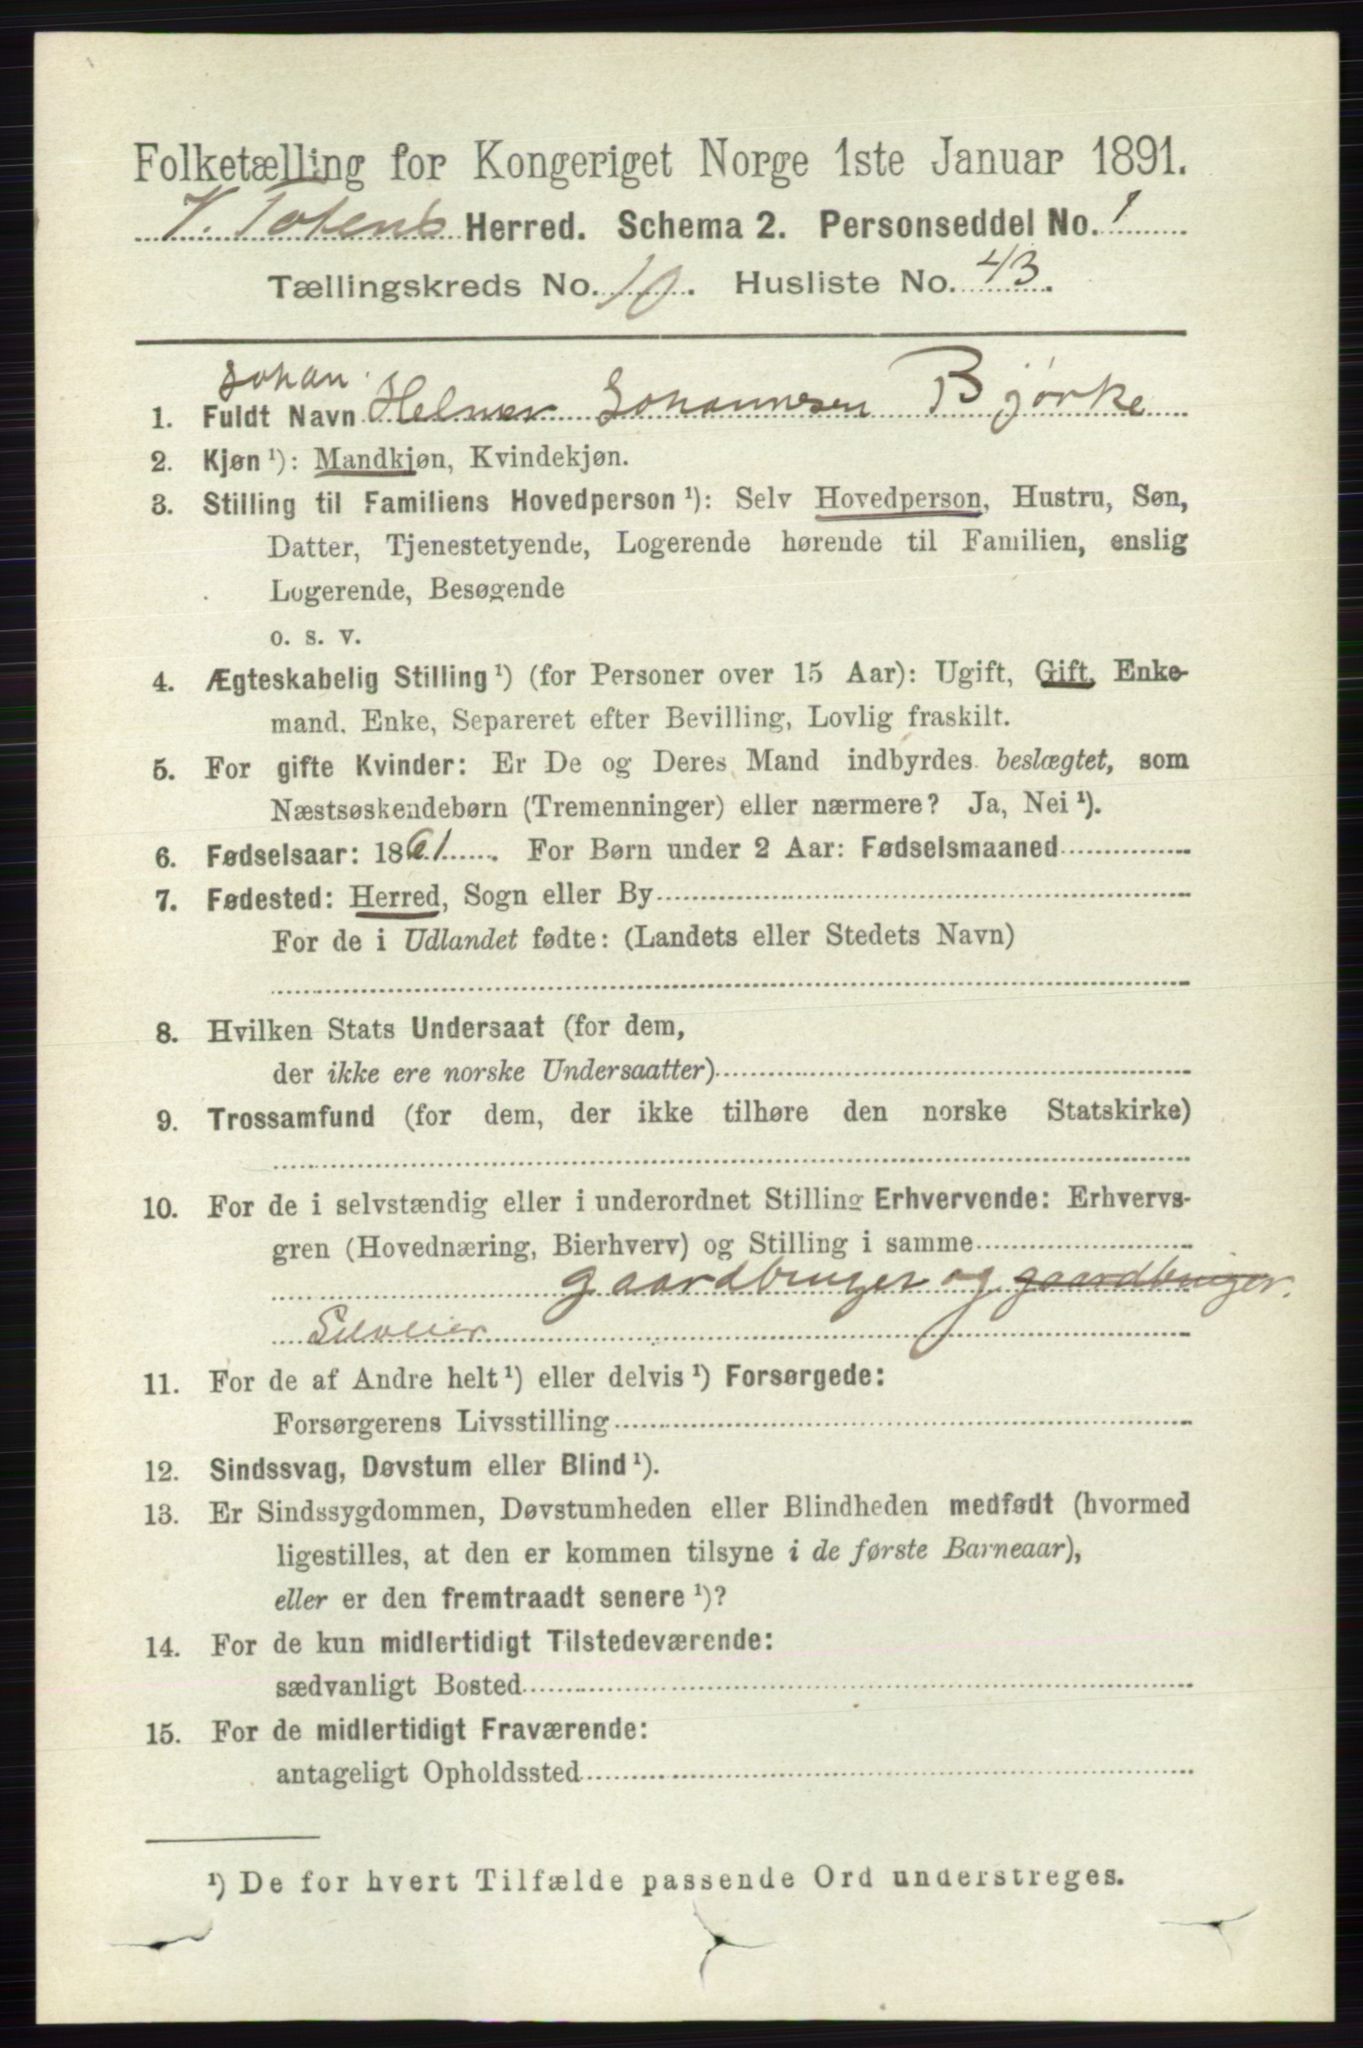 Folketælling for Kongeriget Norge 1ste Januar 1891.
V. Totens Herred. Schema 2. Personseddel No. 1
Tællingskreds No. 10. Husliste No. 43.
Johan
1. Fuldt Navn Helmer Johannesen Bjørke
2. Kjøn ¹): Mandkjøn, Kvindekjøn.
3. Stilling til Familiens Hovedperson ¹): Selv Hovedperson, Hustru, Søn,
Datter, Tjenestetyende, Logerende hørende til Familien, enslig
Logerende, Besøgende
o. s. v.
4. Ægteskabelig Stilling ¹) (for Personer over 15 Aar): Ugift, Gift, Enke-
mand, Enke, Separeret efter Bevilling, Lovlig fraskilt.
5. For gifte Kvinder: Er De og Deres Mand indbyrdes beslægtet, som
Næstsøskendebørn (Tremenninger) eller nærmere? Ja, Nei ¹).
6. Fødselsaar: 1861. For Børn under 2 Aar: Fødselsmaaned
7. Fødested: Herred, Sogn eller By
For de i Udlandet fødte: (Landets eller Stedets Navn)
8. Hvilken Stats Undersaat (for dem,
der ikke ere norske Undersaatter)
9. Trossamfund (for dem, der ikke tilhøre den norske Statskirke)
10. For de i selvstændig eller i underordnet Stilling Erhvervende: Erhvervs-
gren (Hovednæring, Bierhverv) og Stilling i samme
gaardbruger og gaardbruger.
Selveier
11. For de af Andre helt ¹) eller delvis ¹) Forsørgede:
Forsørgerens Livsstilling
12. Sindssvag, Døvstum eller Blind ¹).
13. Er Sindssygdommen, Døvstumheden eller Blindheden medfødt (hvormed
ligestilles, at den er kommen tilsyne i de første Barneaar),
eller er den fremtraadt senere ¹)?
14. For de kun midlertidigt Tilstedeværende:
sædvanligt Bosted
15. For de midlertidigt Fraværende:
antageligt Opholdssted
¹) De for hvert Tilfælde passende Ord understreges.